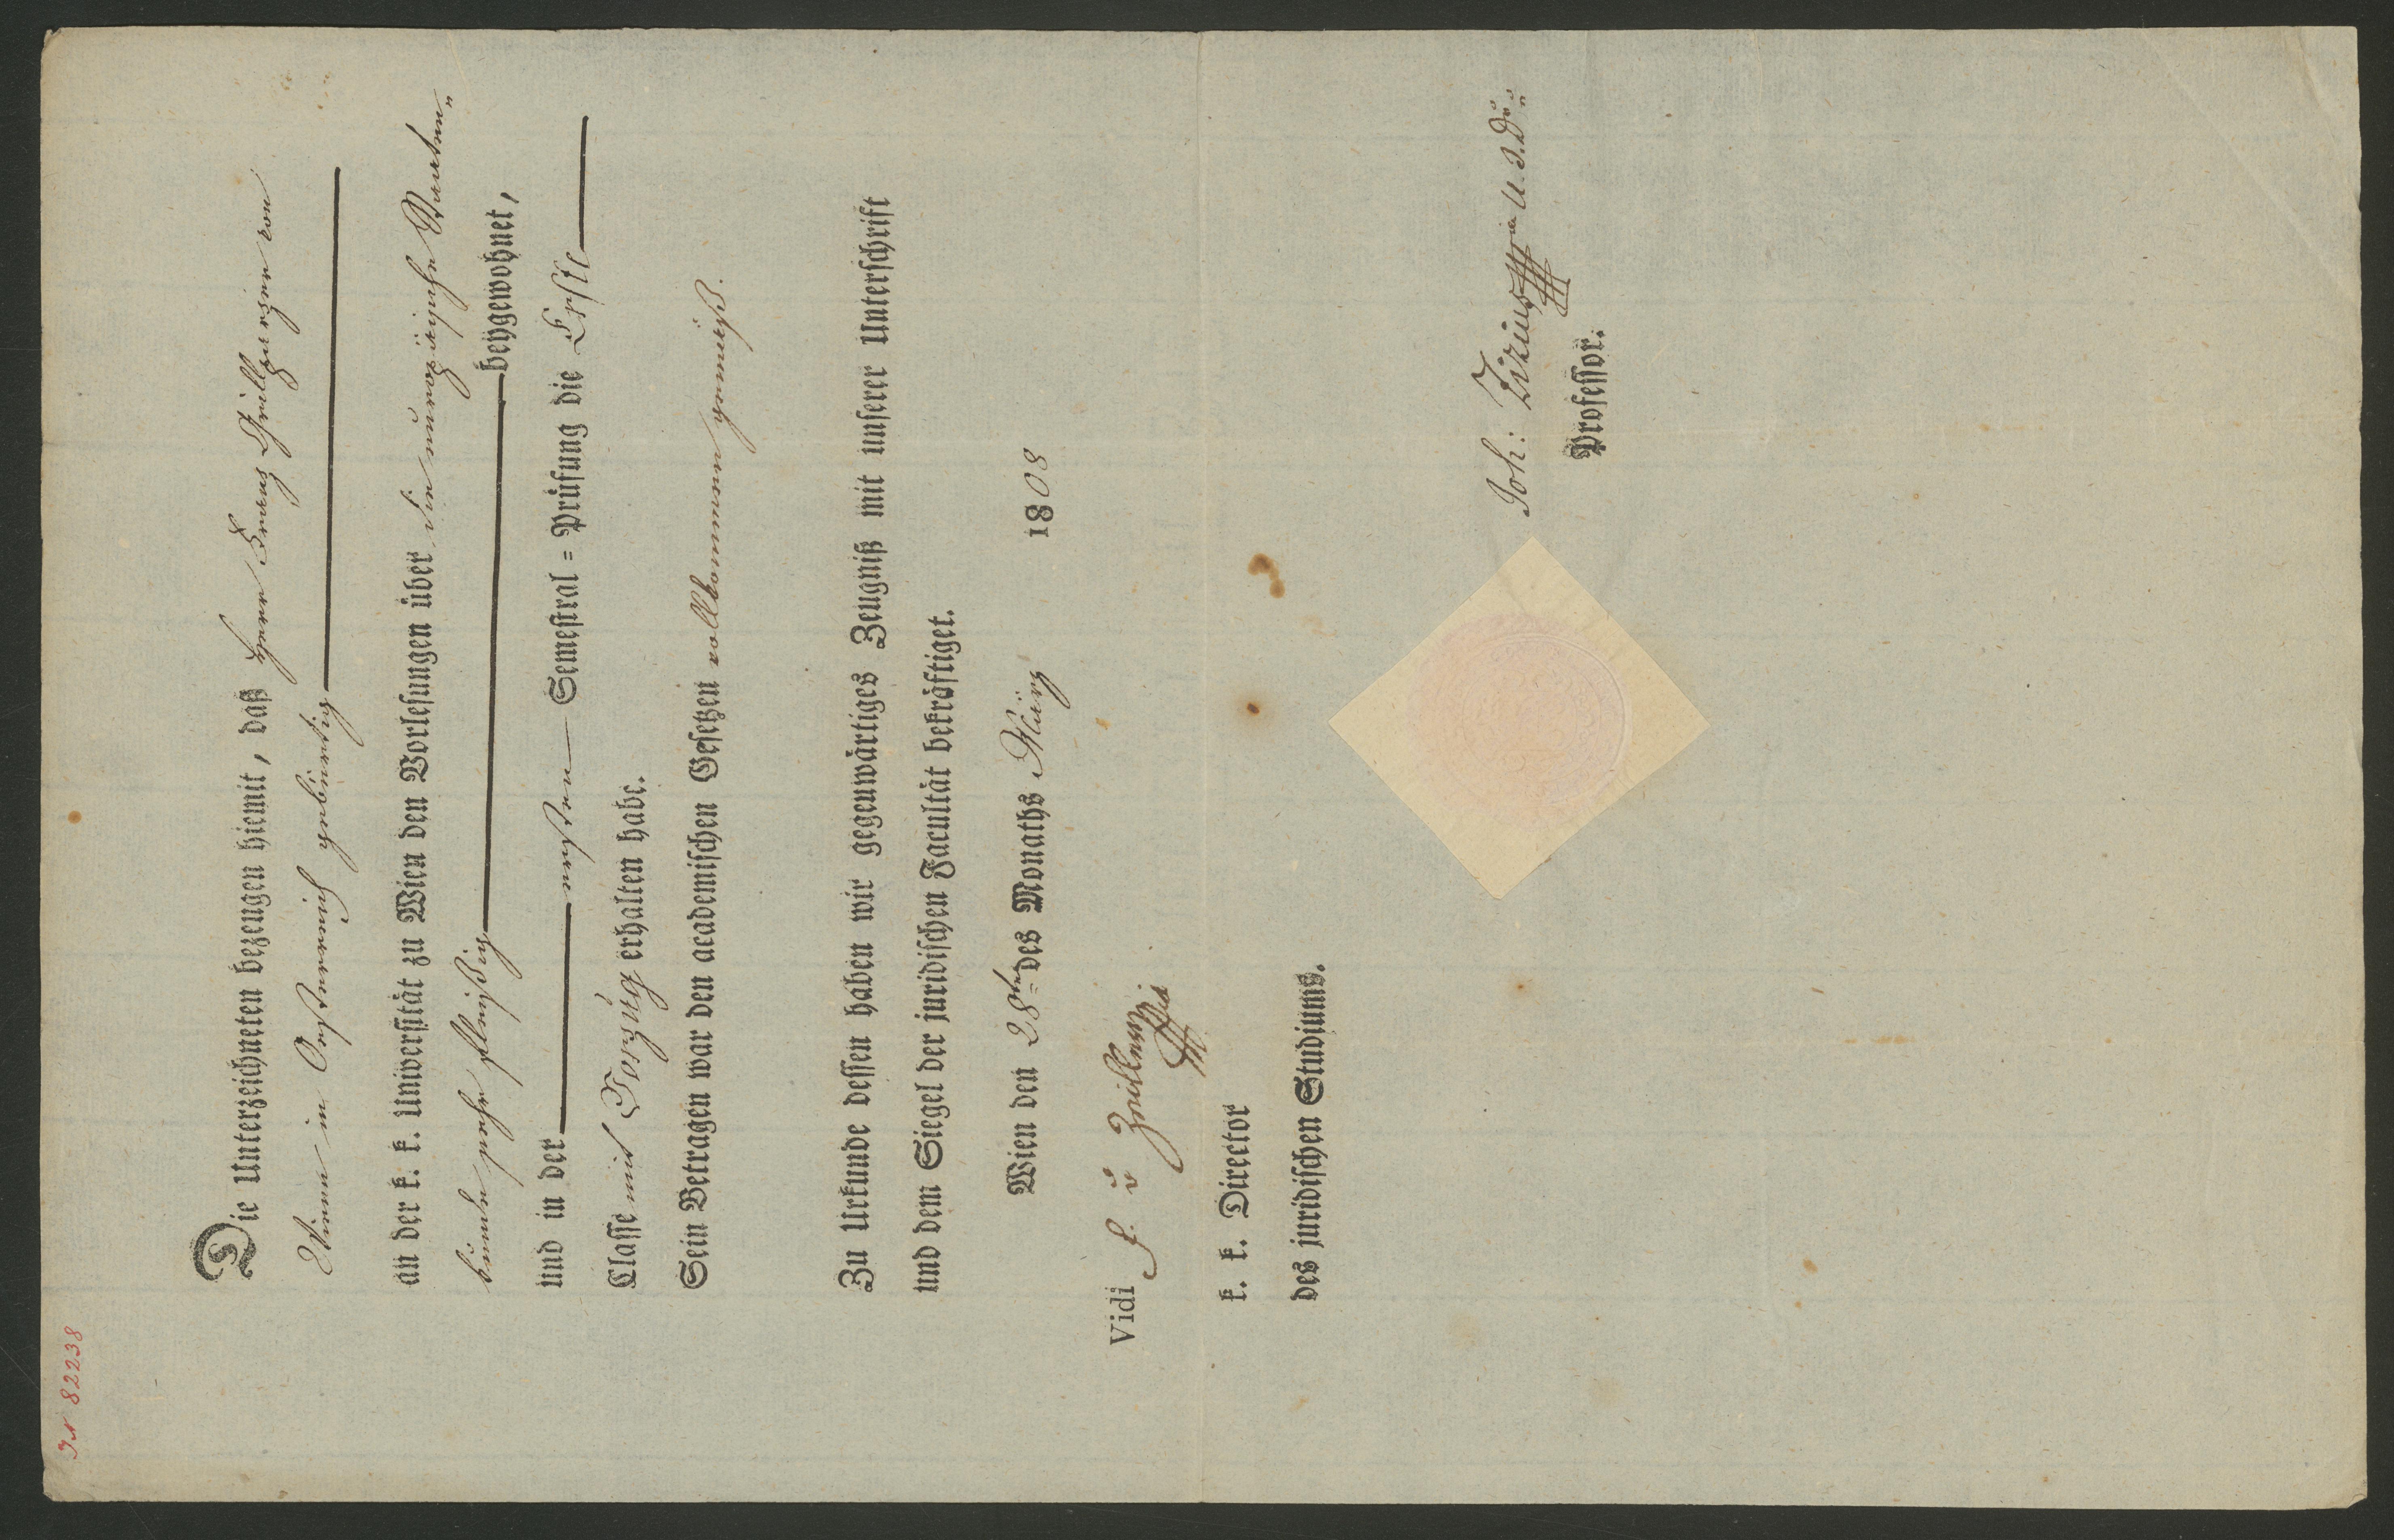 IN 82238
Die Unterzeichneten bezeugen hiemit, daß Herr Franz Grillparzer von
Wienn in Oesterreich gebürtig
an der k. k. Universität zu Wien den Vorlesungen über die europäische Staaten„
kunde sehr fleißig beygewohnet,
und in der ersten Semestral = Prüfung die Erste
Classe mit Vorzug erhalten habe.
Sein Betragen war den academischen Gesetzen vollkommen gemäß.
Zu Urkunde dessen haben wir gegenwärtiges Zeugniß mit unserer Unterschrift
und dem Siegel der juridischen Facultät bekräftiget.
Wien den 28ten des Monaths März 1808
Vidi F. v Zeiller
k. k. Director
des juridischen Studiums.
Joh: Zizius U.J.Dr
Professor.